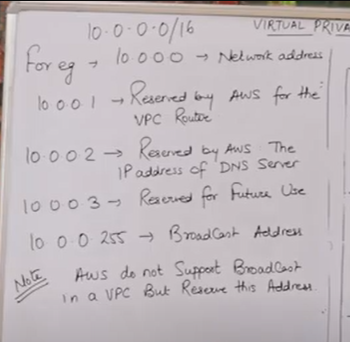 10.0.0.0/16
VIRTUAL PRIVA
For eg → 10.0.0.0 → Network address
10.0.0.1 → Reserved by AWS for the
VPC Router
10.0.0.2 → Reserved by AWS. The
IP address of DNS Server
10.0.0.3 → Reserved for Future Use
10.0.0.255 → BroadCast Address
Note AWS do not Support BroadCast
in a VPC But Reserve this Address.